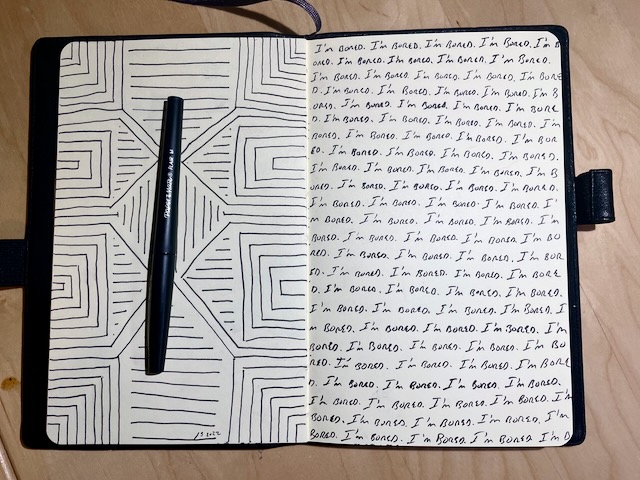 I'm BORED. I'm BORED. I'm BORED. I'm BORED. I'm B
ORED. I'm BORED. I'm BORED. I'm BORED. I'm BORED.
I'm BORED. I'm BORED. I'm BORED. I'm BORED. I'm BORE
D. I'm BORED. I'm BORED. I'm BORED. I'm BORED. I'm B
ORED. I'm BORED. I'm BORED. I'm BORED. I'm BORE
D. I'm BORED. I'm BORED. I'm BORED. I'm BORED. I'm
BORED. I'm BORED. I'm BORED. I'm BORED. I'm BOR
ED. I'm BORED. I'm BORED. I'm BORED. I'm BORED.
I'm BORED. I'm BORED. I'm BORED. I'm BORED. I'm B
ORED. I'm BORED. I'm BORED. I'm BORED. I'm BORED.
I'm BORED. I'm BORED. I'm BORED. I'm BORED. I'
m BORED. I'm BORED. I'm BORED. I'm BORED. I'm
BORED. I'm BORED. I'm BORED. I'm BORED. I'm BO
RED. I'm BORED. I'm BORED. I'm BORED. I'm BOR
ED. I'm BORED. I'm BORED. I'm BORED. I'm BORE
D. I'm BORED. I'm BORED. I'm BORED. I'm BORED.
I'm BORED. I'm BORED. I'm BORED. I'm BORED. I
m BORED. I'm BORED. I'm BORED. I'm BORED. I'm
BORED. I'm BORED. I'm BORED. I'm BORED. I'm BO
RED. I'm BORED. I'm BORED. I'm BORED. I'm BORE
D. I'm BORED. I'm BORED. I'm BORED. I'm BORED.
I'm BORED. I'm BORED. I'm BORED. I'm BORED. I'm
BORED. I'm BORED. I'm BORED. I'm BORED. I'm
BORED. I'm BORED. I'm BORED. I'm BORED I'm B